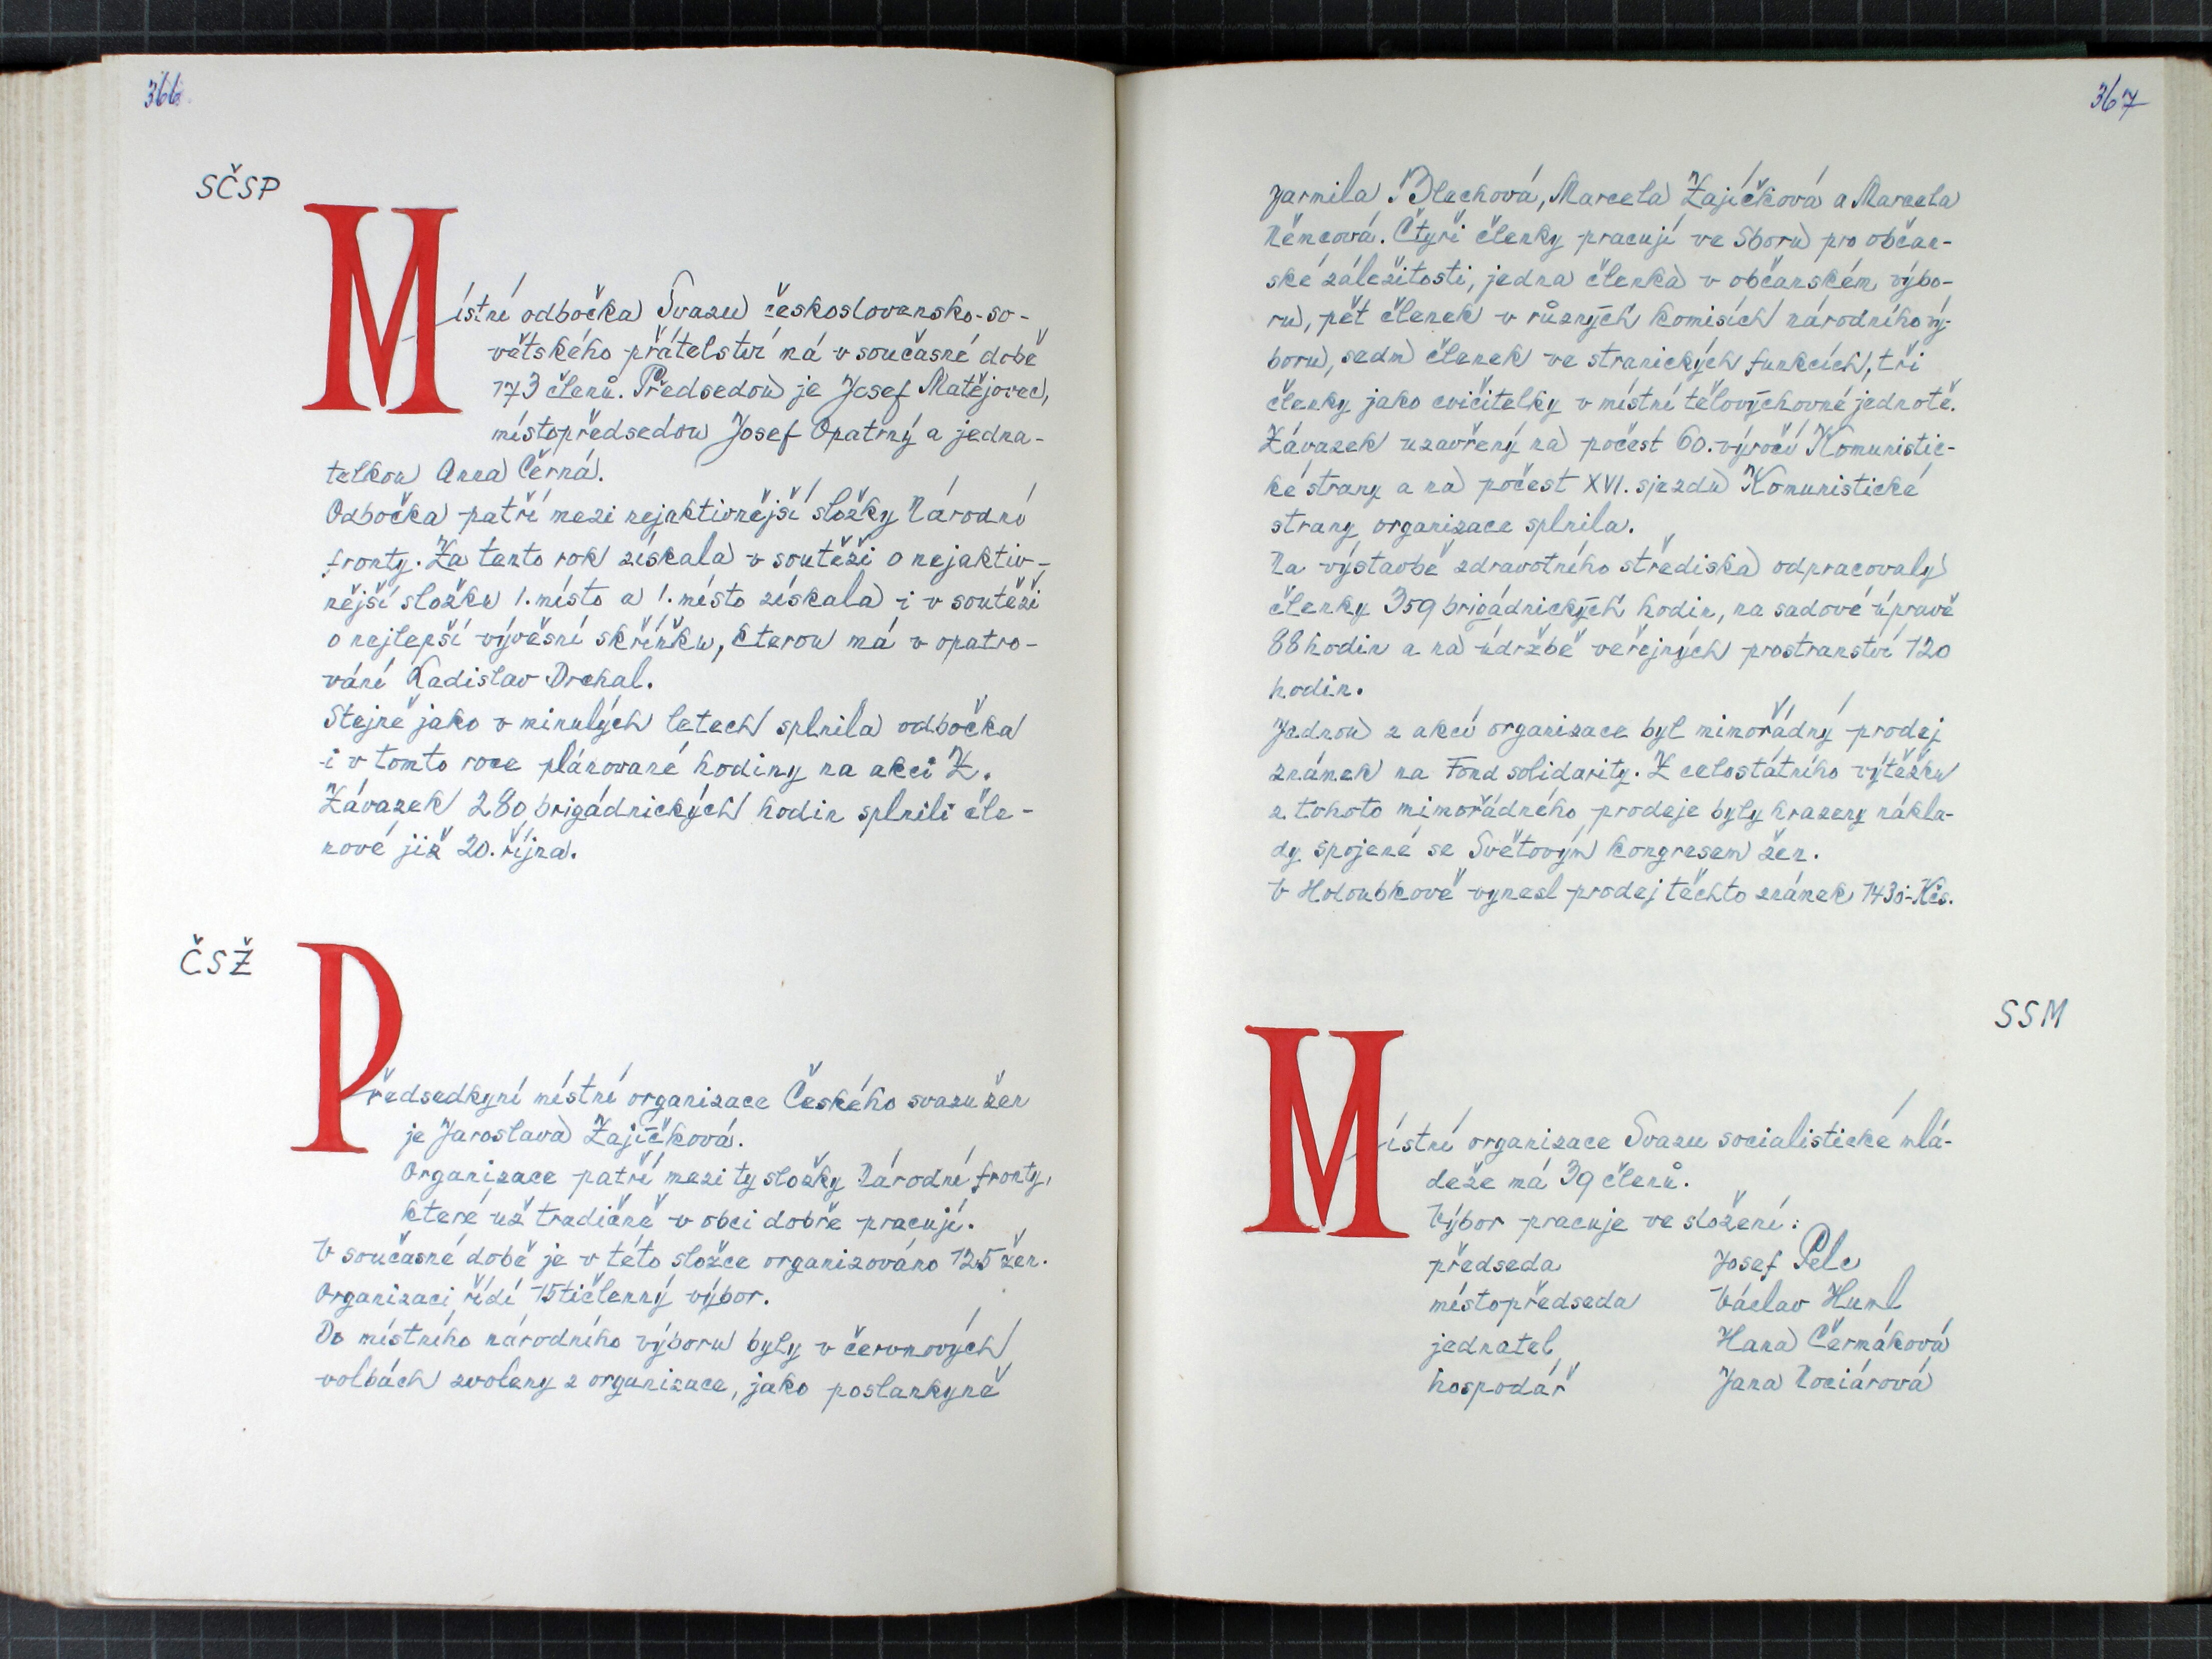 366
SČSP
Místní odbočka Svazu československo-so-
větského přátelství má v současné době
173 členů. Předsedou je Josef Matějovec,
místopředsedou Josef Opatrný a jedna-
telkou Anna Černá.
Odbočka patří mezi nejaktivnější složky Národní
fronty. Za tento rok získala v soutěži o nejaktiv-
nější složku 1. místo a 1. místo získala i v soutěži
o nejlepší vývěsní skříňku, kterou má v opatro-
vání Ladislav Drchal.
Stejně jako v minulých letech splnila odbočka
i v tomto roce plánované hodiny na akci Z.
Závazek 280 brigádnických hodin splnili čle-
nové již 20. října.
ČSŽ
Předsedkyní místní organizace Českého svazu žen
je Jaroslava Zajíčková.
Organizace patří mezi ty složky Národní fronty,
které už tradičně v obci dobře pracují.
V současné době je v této složce organizováno 125 žen.
Organizaci řídí 15tičlenný výbor.
Do místního národního výboru byly v červnových
volbách zvoleny z organizace, jako poslankyně
367
Jarmila Blechová, Marcela Zajíčková a Marcela
Němcová. Čtyři členky pracují ve Sboru pro občan-
ské záležitosti, jedna členka v občanském výbo-
ru, pět členek v různých komisích národního vý-
boru, sedm členek ve stranických funkcích, tři
členky jako cvičitelky v místní tělovýchovné jednotě.
Závazek uzavřený na počest 60. výročí Komunistic-
ké strany a na počest XVI. sjezdu Komunistické
strany organizace splnila.
Na výstavbě zdravotního střediska odpracovaly
členky 359 brigádnických hodin, na sadové úpravě
88 hodin a na údržbě veřejných prostranství 120
hodin.
Jednou z akcí organizace byl mimořádný prodej
známek na Fond solidarity. Z celostátního výtěžku
z tohoto mimořádného prodeje byly hrazeny nákla-
dy spojené se Světovým kongresem žen.
V Holoubkově vynesl prodej těchto známek 1430.-Kčs.
SSM
Místní organizace Svazu socialistické mlá-
deže má 39 členů.
Výbor pracuje ve složení:
předseda Josef Pelc
místopředseda Václav Huml
jednatel Hana Čermáková
hospodář Jana Nociárová